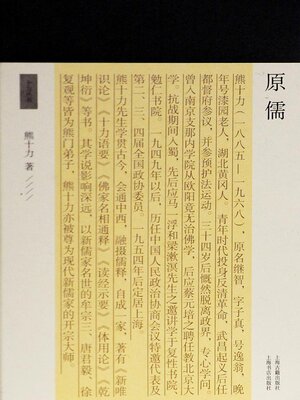 原儒
熊十力（一八八五—一九六八），原名继智，字子真，号逸翁，晚
年号漆园老人，湖北黄冈人。青年时代投身反清革命，武昌起义后任
都督府参议，并参预护法运动。三十四岁后慨然脱离政界，专心学问。
曾入南京支那内学院从欧阳竟无治佛学，后应蔡元培之聘任教北京大
学。抗战期间入蜀，先后应马一浮和梁漱溟先生之邀讲学于复性书院、
勉仁书院。一九四九年以后，历任中国人民政治协商会议特邀代表及
第二、三、四届全国政协委员。一九五四年后定居上海。
熊十力先生学贯古今，会通中西，融摄儒释，自成一家，著有《新唯
识论》《十力语要》《佛家名相通释》《读经示要》《体用论》《乾
坤衍》等书。其学说影响深远，以新儒家名世的牟宗三、唐君毅、徐
复观等皆为熊门弟子，熊十力亦被尊为现代新儒家的开宗大师。
熊十力 著
上海古籍出版社
上海书店出版社